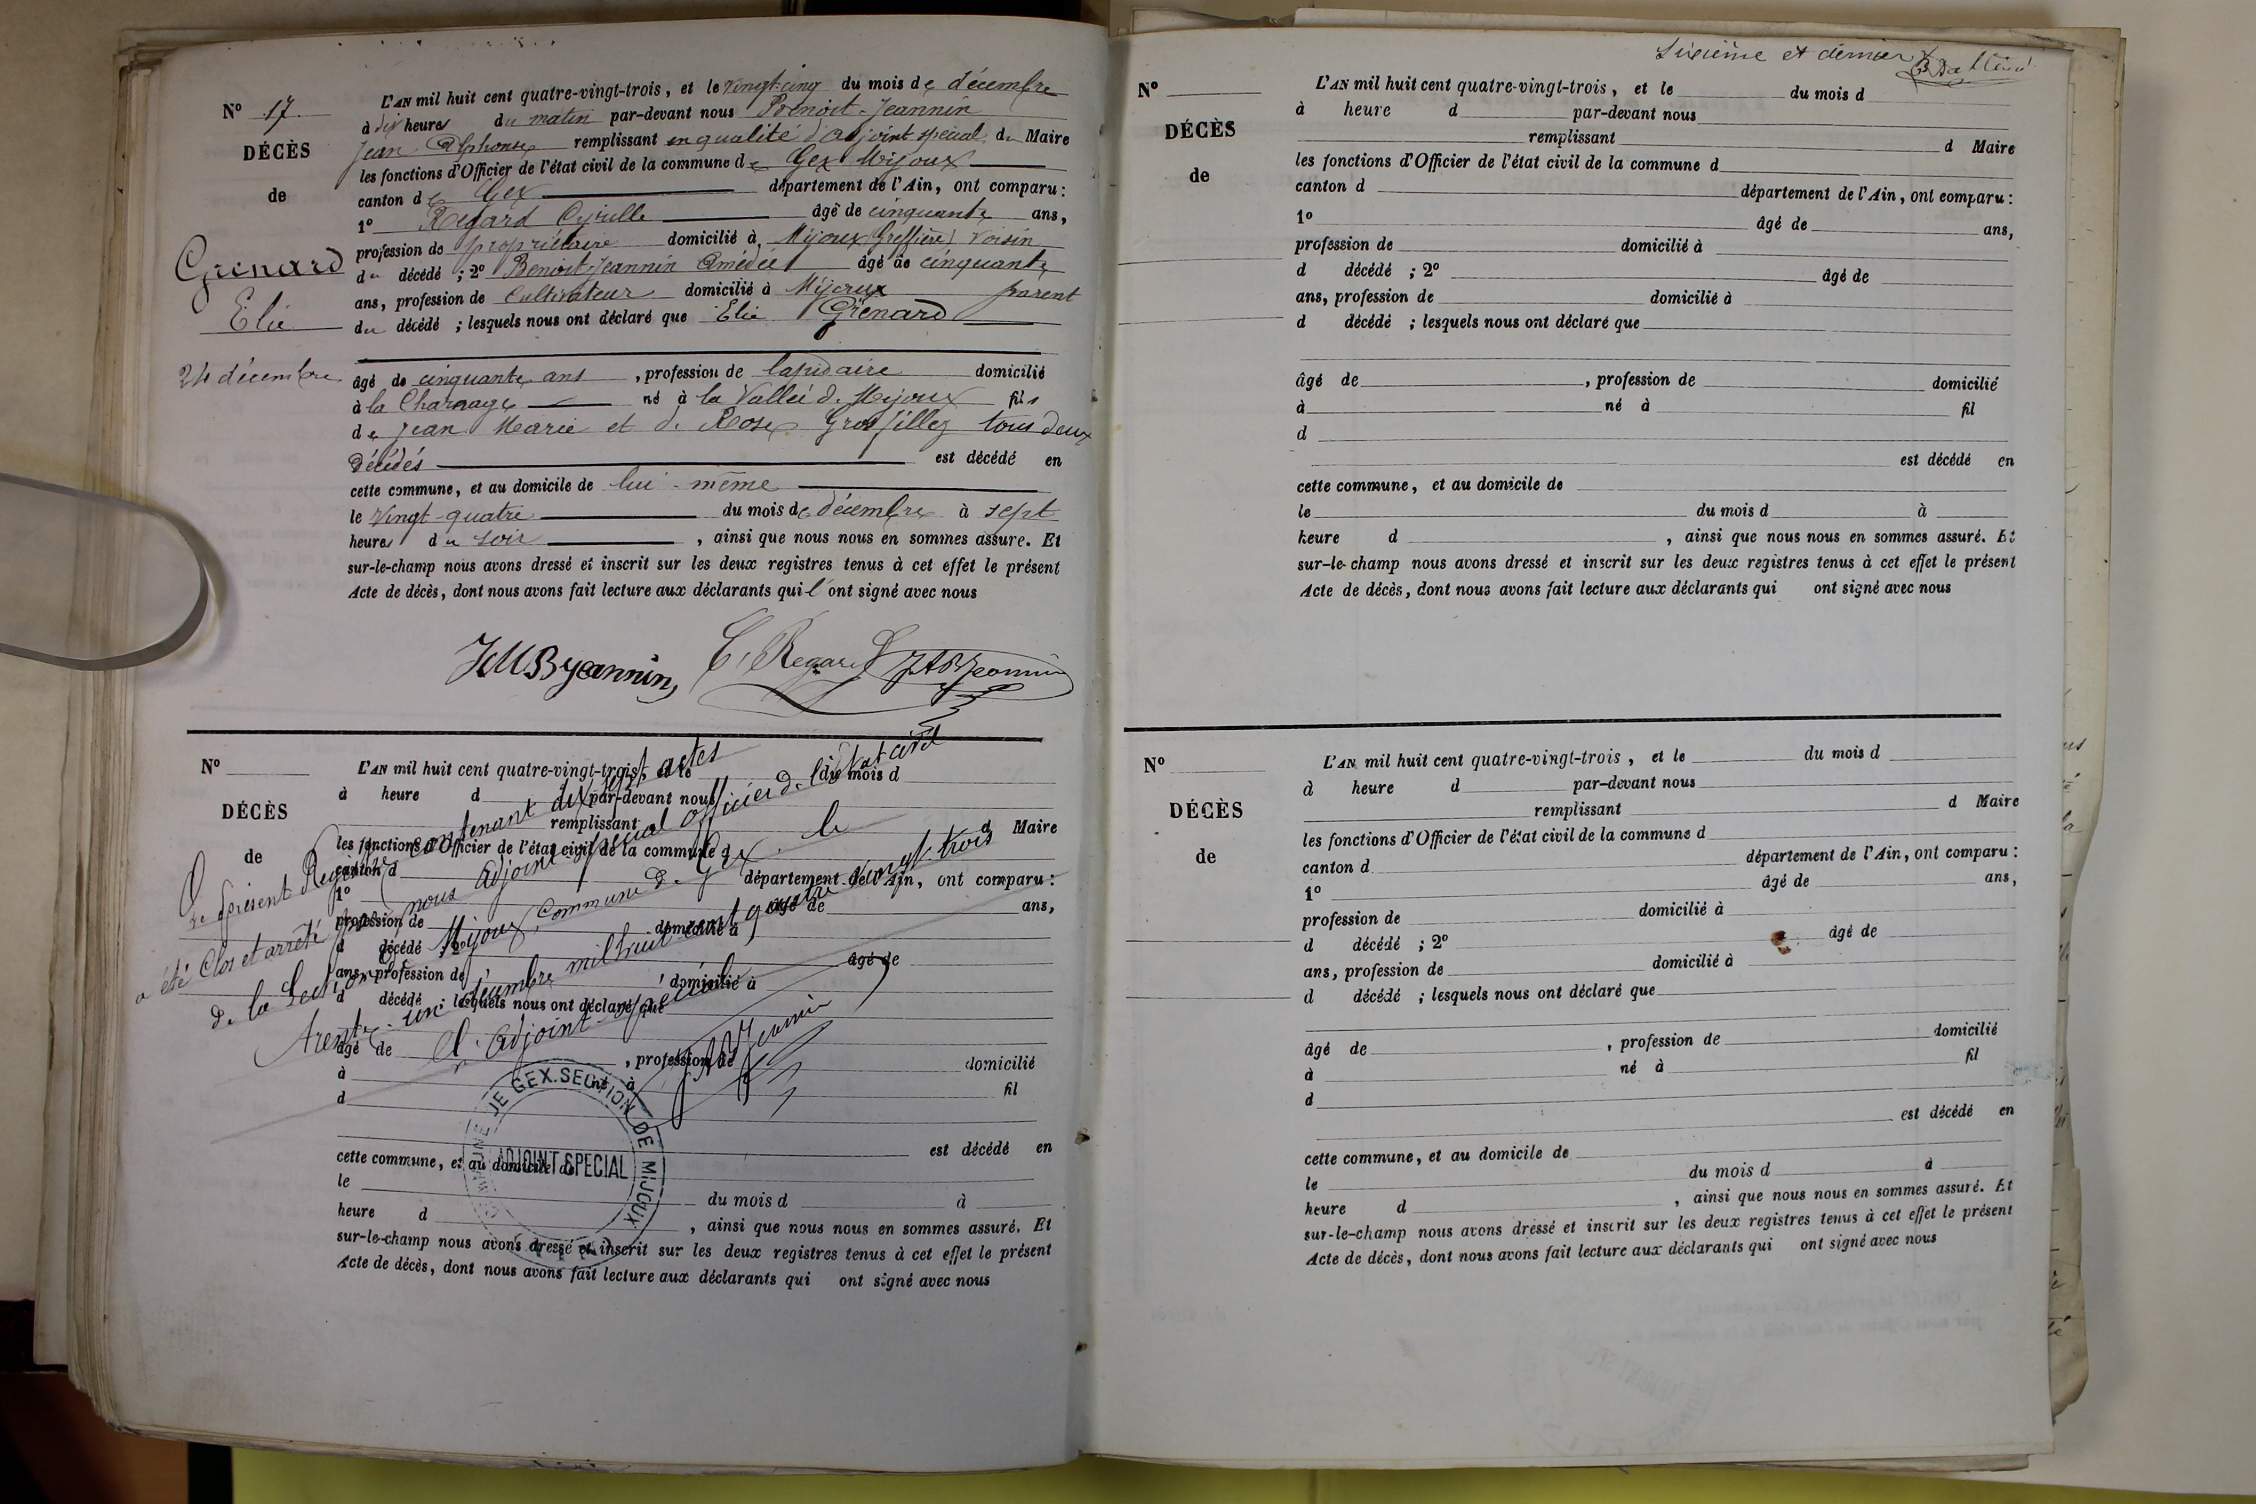 N° 17
DÉCÈS
de
Grenard
Elie
24 décembre
L'AN mil huit cent quatre-vingt-trois, et le vingt-cinq du mois de décembre
à dix heures du matin par-devant nous Benoit-Jeannin
Jean Alphonse remplissant en qualité d'adjoint spécial du Maire
les fonctions d'Officier de l'état civil de la commune de Gex Mijoux
canton de Gex département de l'Ain, ont comparu :
1° Regard Cyrille âgé de cinquante ans,
profession de propriétaire domicilié à Mijoux (Greffière) voisin
du décédé ; 2° Benoit-Jeannin Amédée âgé de cinquante
ans, profession de Cultivateur domicilié à Mijoux parent
du décédé ; lesquels nous ont déclaré que Elie Grenard
âgé de cinquante ans, profession de lapidaire domicilié
à la Charnage né à la Vallée de Mijoux fils
de Jean Marie et de Rose Grosfillez tous deux
décédés est décédé en
cette commune, et au domicile de lui-même
le vingt-quatre du mois de décembre à sept
heures du soir, ainsi que nous nous en sommes assuré. Et
sur-le-champ nous avons dressé et inscrit sur les deux registres tenus à cet effet le présent
Acte de décès, dont nous avons fait lecture aux déclarants qui l'ont signé avec nous
JMBJeannin C. Regard JABJeannin
N°
DÉCÈS
de
L'AN mil huit cent quatre-vingt-trois, et le du mois d
à heure d par-devant nous
remplissant d Maire
les fonctions d'Officier de l'état civil de la commune d
canton d département de l'Ain, ont comparu :
1° âgé de ans,
profession de domicilié à
d décédé ; 2° âgé de
ans, profession de domicilié à
d décédé ; lesquels nous ont déclaré que
âgé de , profession de domicilié
à né à fil
d
est décédé en
cette commune, et au domicile de
le du mois d à
heure d , ainsi que nous nous en sommes assuré. Et
sur-le-champ nous avons dressé et inscrit sur les deux registres tenus à cet effet le présent
Acte de décès, dont nous avons fait lecture aux déclarants qui ont signé avec nous
Le présent Registre contenant dix sept actes
a été clos et arrêté par nous adjoint spécial officier de l'état civil
de la Section de Mijoux, Commune de Gex, le
trente-un décembre mil huit cent quatre vingt-trois
L'Adjoint spécial
JABJeannin
GEX. SECTION DE MIJOUX
ADJOINT SPECIAL
Sixième et dernier
N°
DÉCÈS
de
L'AN mil huit cent quatre-vingt-trois, et le du mois d
à heure d par-devant nous
remplissant d Maire
les fonctions d'Officier de l'état civil de la commune d
canton d département de l'Ain, ont comparu :
1° âgé de ans,
profession de domicilié à
d décédé ; 2° âgé de
ans, profession de domicilié à
d décédé ; lesquels nous ont déclaré que
âgé de , profession de domicilié
à né à fil
d
est décédé en
cette commune, et au domicile de
le du mois d à
heure d , ainsi que nous nous en sommes assuré. Et
sur-le-champ nous avons dressé et inscrit sur les deux registres tenus à cet effet le présent
Acte de décès, dont nous avons fait lecture aux déclarants qui ont signé avec nous
N°
DÉCÈS
de
L'AN mil huit cent quatre-vingt-trois, et le du mois d
à heure d par-devant nous
remplissant d Maire
les fonctions d'Officier de l'état civil de la commune d
canton d département de l'Ain, ont comparu :
1° âgé de ans,
profession de domicilié à
d décédé ; 2° âgé de
ans, profession de domicilié à
d décédé ; lesquels nous ont déclaré que
âgé de , profession de domicilié
à né à fil
d
est décédé en
cette commune, et au domicile de
le du mois d à
heure d , ainsi que nous nous en sommes assuré. Et
sur-le-champ nous avons dressé et inscrit sur les deux registres tenus à cet effet le présent
Acte de décès, dont nous avons fait lecture aux déclarants qui ont signé avec nous